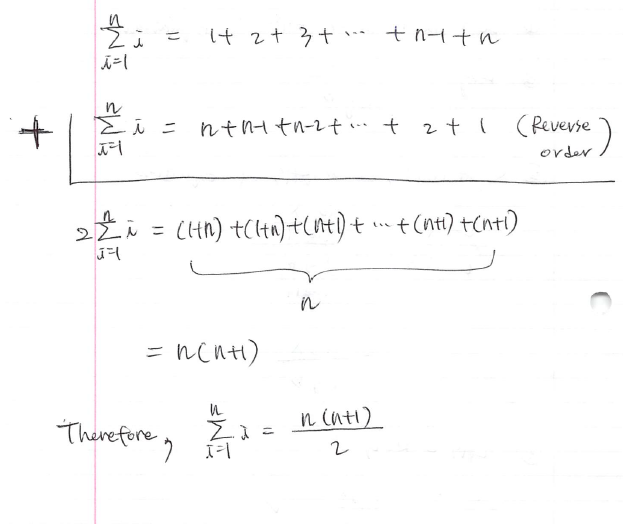 n
∑ i = 1 + 2 + 3 + ... + n-1 + n
i=1
n
+ ∑ i = n + n-1 + n-2 + ... + 2 + 1 (Reverse order)
i=1
n
2∑ i = (1+n) + (1+n) + (n+1) + ... + (n+1) + (n+1)
i=1
n
= n(n+1)
n
Therefore, ∑ i = n(n+1)/2
i=1